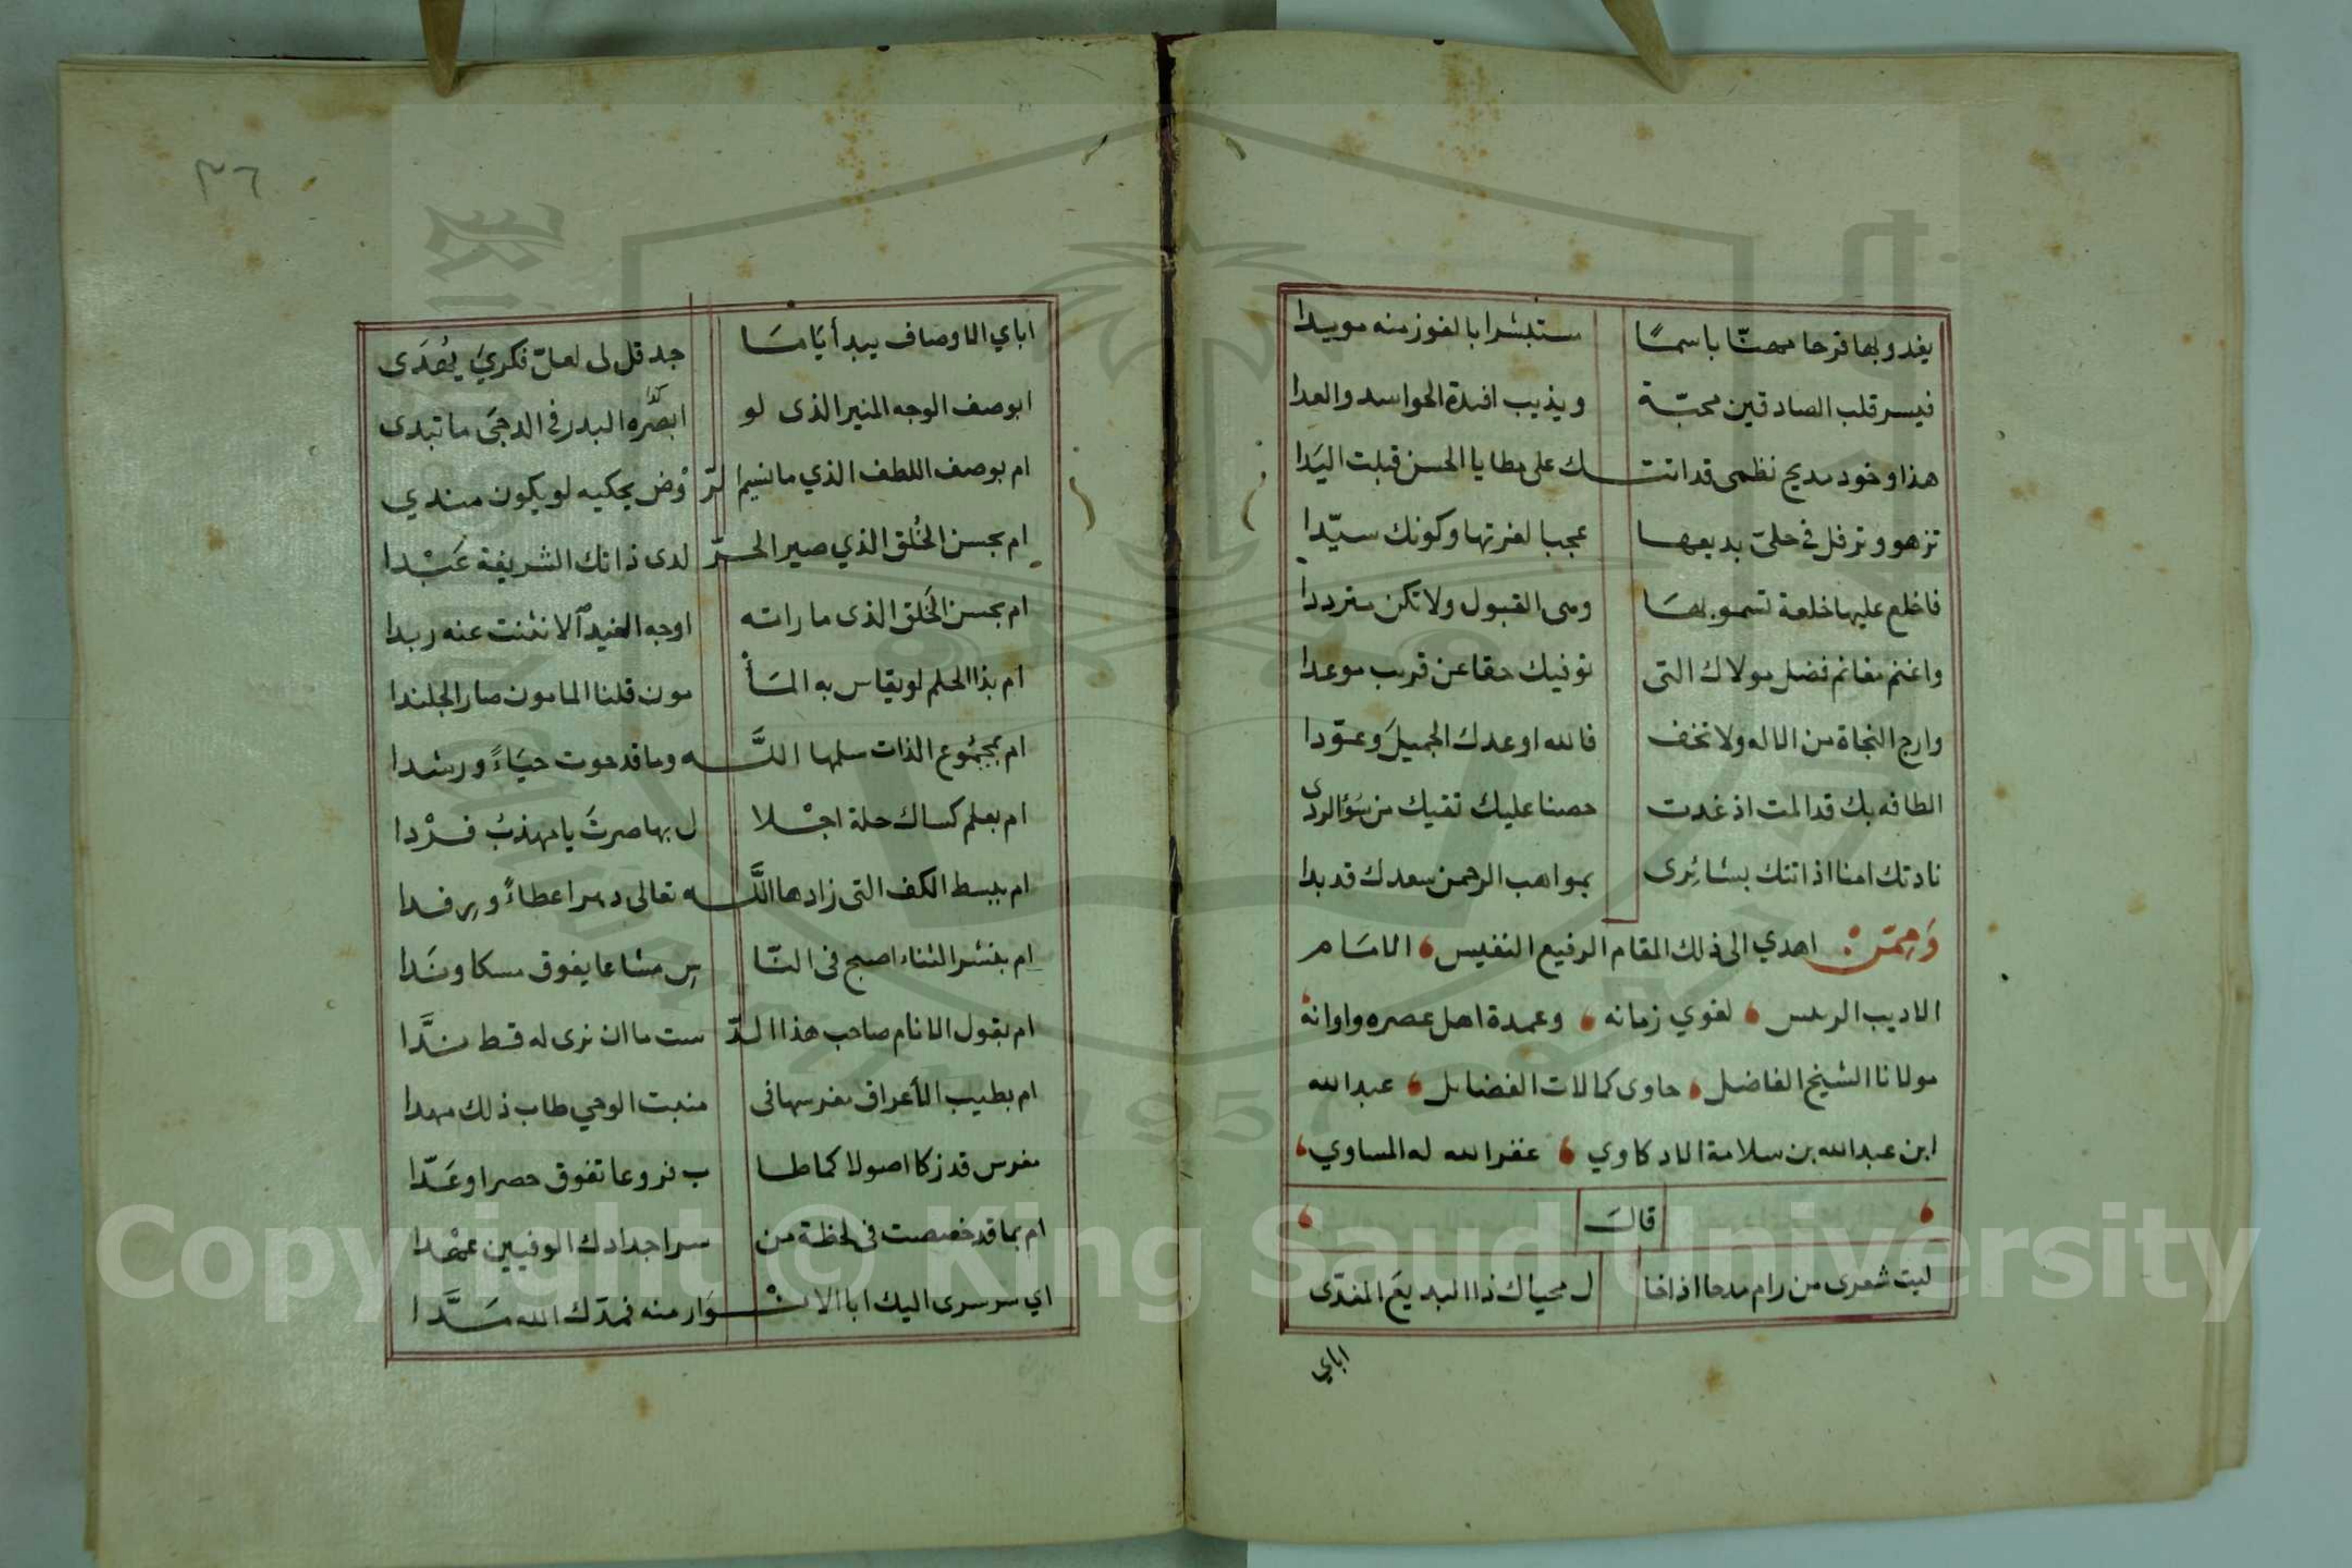 يغدو بها فرحا مهنّا باسمًا ستبشرا بالفوز منه مويدا
فيسر قلب الصادقين محبّة ويذيب افدة الحواسد والعدا
هذا وخود مديح نظمى قد اتتك على مطايا الحسن قبلت اليَدا
تزهو وترفل في حلىّ بديعها عجبا لغرتها وكونك سيّدا
فاخلع عليها خلعة تسمو بها ومى القبول ولا تكن مترددا
واغنم مغانم فضل مولاك التى توفيك حقا عن قريب موعدا
وارج النجاة من الاله ولا تخف فالله اوعدك الجميلَ وعوّدا
الطافه بك قد المت اذ غدت حصنا عليك تقيك من سُؤالردى
نادتك امنا اذ اتتك بشائِرى بمواهب الرحمن سعدك قد بدا
وَممّن اهدي الى ذلك المقام الرفيع النفيس، الامَام
الاديب الرىس، لغوي زمانه، وعمدة اهل عصره واوانه،
مولانا الشيخ الفاضل، حاوى كمالات الفضايل، عبدالله
ابن عبدالله بن سلامة الادكاوي، غفر الله له المساوي،
قالَ
ليت شعرى من رام مدحا اذا خا ل محياك ذا البديعَ المفدّى
اباي
٣٦
اباي الاوصاف يبدأ يَامَا جد قل لى لعلّ فكريَ يُهدَى
ابوصف الوجه المنير الذى لو ابصَرَه البدر في الدجَى ما تبدى
ام بوصف اللطف الذي ما نسيم الرّ وْض يحكيه لو يكون مندي
ام بحسن الخُلق الذي صير الحرّ لدى ذاتك الشريفة عَبْدا
ام بحسن الخَلق الذى ما راته اوجه الغيد الا نثنت عنه ربدا
ام بذا الحلم لو يقاس به المَأْ مون قلنا المامون صار الجلندا
ام بمجمُوع الذات سلمها اللَّه وما قد حوت حيَاءً ورشدا
ام بعلم كساك حلة اجْلا ل بها صرتَ يا مهذبُ فرْدا
ام ببسط الكف التى زادها اللَّه تعالى دهرا عطاءً ورفدا
ام بنشر الثناء اصبح فى النّا س مشاعا يفوق مسكا ونَدا
ام بقول الانام صاحب هذا الدّ ست ما ان نرى له قط ندَّا
ام بطيب الأعراق مغرسها فى منبت الوحي طاب ذلك مهدا
مغرس قد زكا اصولا كما طا ب فروعا تفوق حصرا وعَدّا
ام بما قد خصصت فى لحظة من سر اجدادك الوفيين عهْدا
اي سر سرى اليك ابا الانْوَار منه فمدّك الله مَدَّا
Copyright © King Saud University
1957